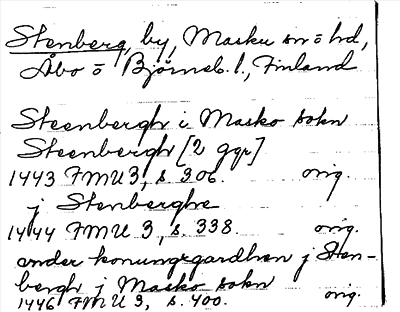 Stenberg, by, Masku sn o hd,
Åbo o Björneb. l., Finland
Steenbergh i Masko sokn
Steenbergh [2 ggr]
1443 FMU 3, s. 306. orig.
j Stenberghe
1444 FMU 3, s. 338. orig.
under konungxgardhen j Sten-
bergh j Masko sokn
1446 FMU 3, s. 400. orig.